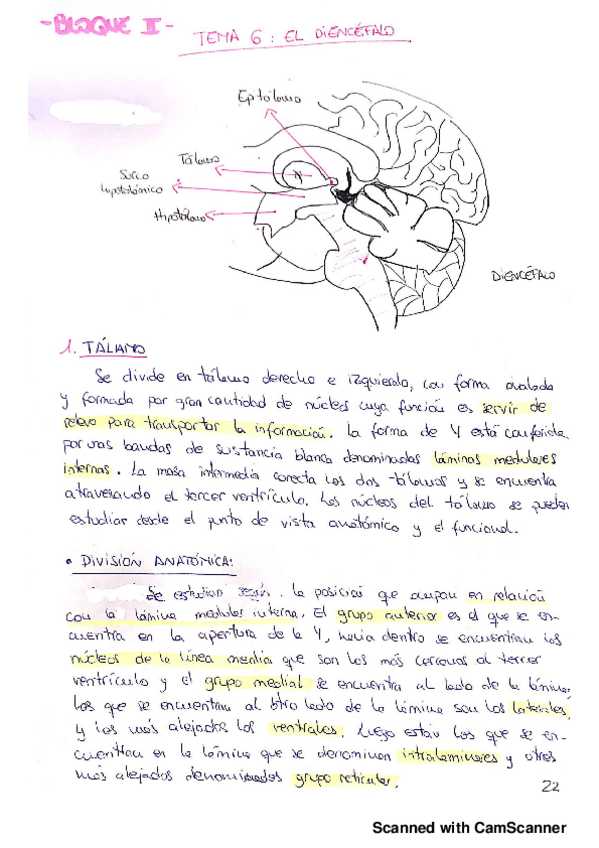 -BLOQUE II-
TEMA 6: EL DIENCÉFALO
Epitálamo
Tálamo
Surco
hipotalámico
Hipotálamo
DIENCÉFALO
1. TÁLAMO
Se divide en tálamo derecho e izquierdo, con forma ovalada
y formada por gran cantidad de núcleos cuya función es servir de
relevo para transportar la información. La forma de Y está conferida
por unas bandas de sustancia blanca denominadas láminas medulares
internas. La masa intermedia conecta los dos tálamos y se encuentra
atravesando el tercer ventrículo. Los núcleos del tálamo se pueden
estudiar desde el punto de vista anatómico y el funcional.
• DIVISIÓN ANATÓMICA:
Se estudian según la posición que ocupan en relación
con la lámina medular interna. El grupo anterior es el que se en-
cuentra en la apertura de la Y, hacia dentro se encuentran los
núcleos de la línea media que son los más cercanos al tercer
ventrículo y el grupo medial se encuentra al lado de la lámina,
los que se encuentran al otro lado de la lámina son los laterales,
y los más alejados los ventrales. Luego están los que se en-
cuentran en la lámina que se denominan intralaminares y otros
más alejados denominados grupo reticular.
22
Scanned with CamScanner